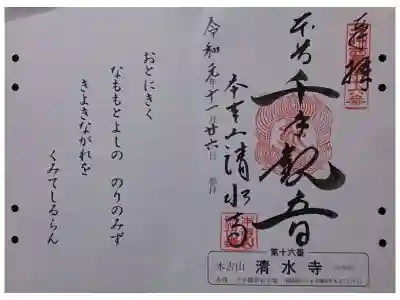 奉拝
本尊 千手観音
本吉山 清水寺
令和元年十一月廿六日 参拝
おとにきく
なももとよしの のりのみず
きよきながれを
くみてしるらん
第十六番
本吉山 清水寺